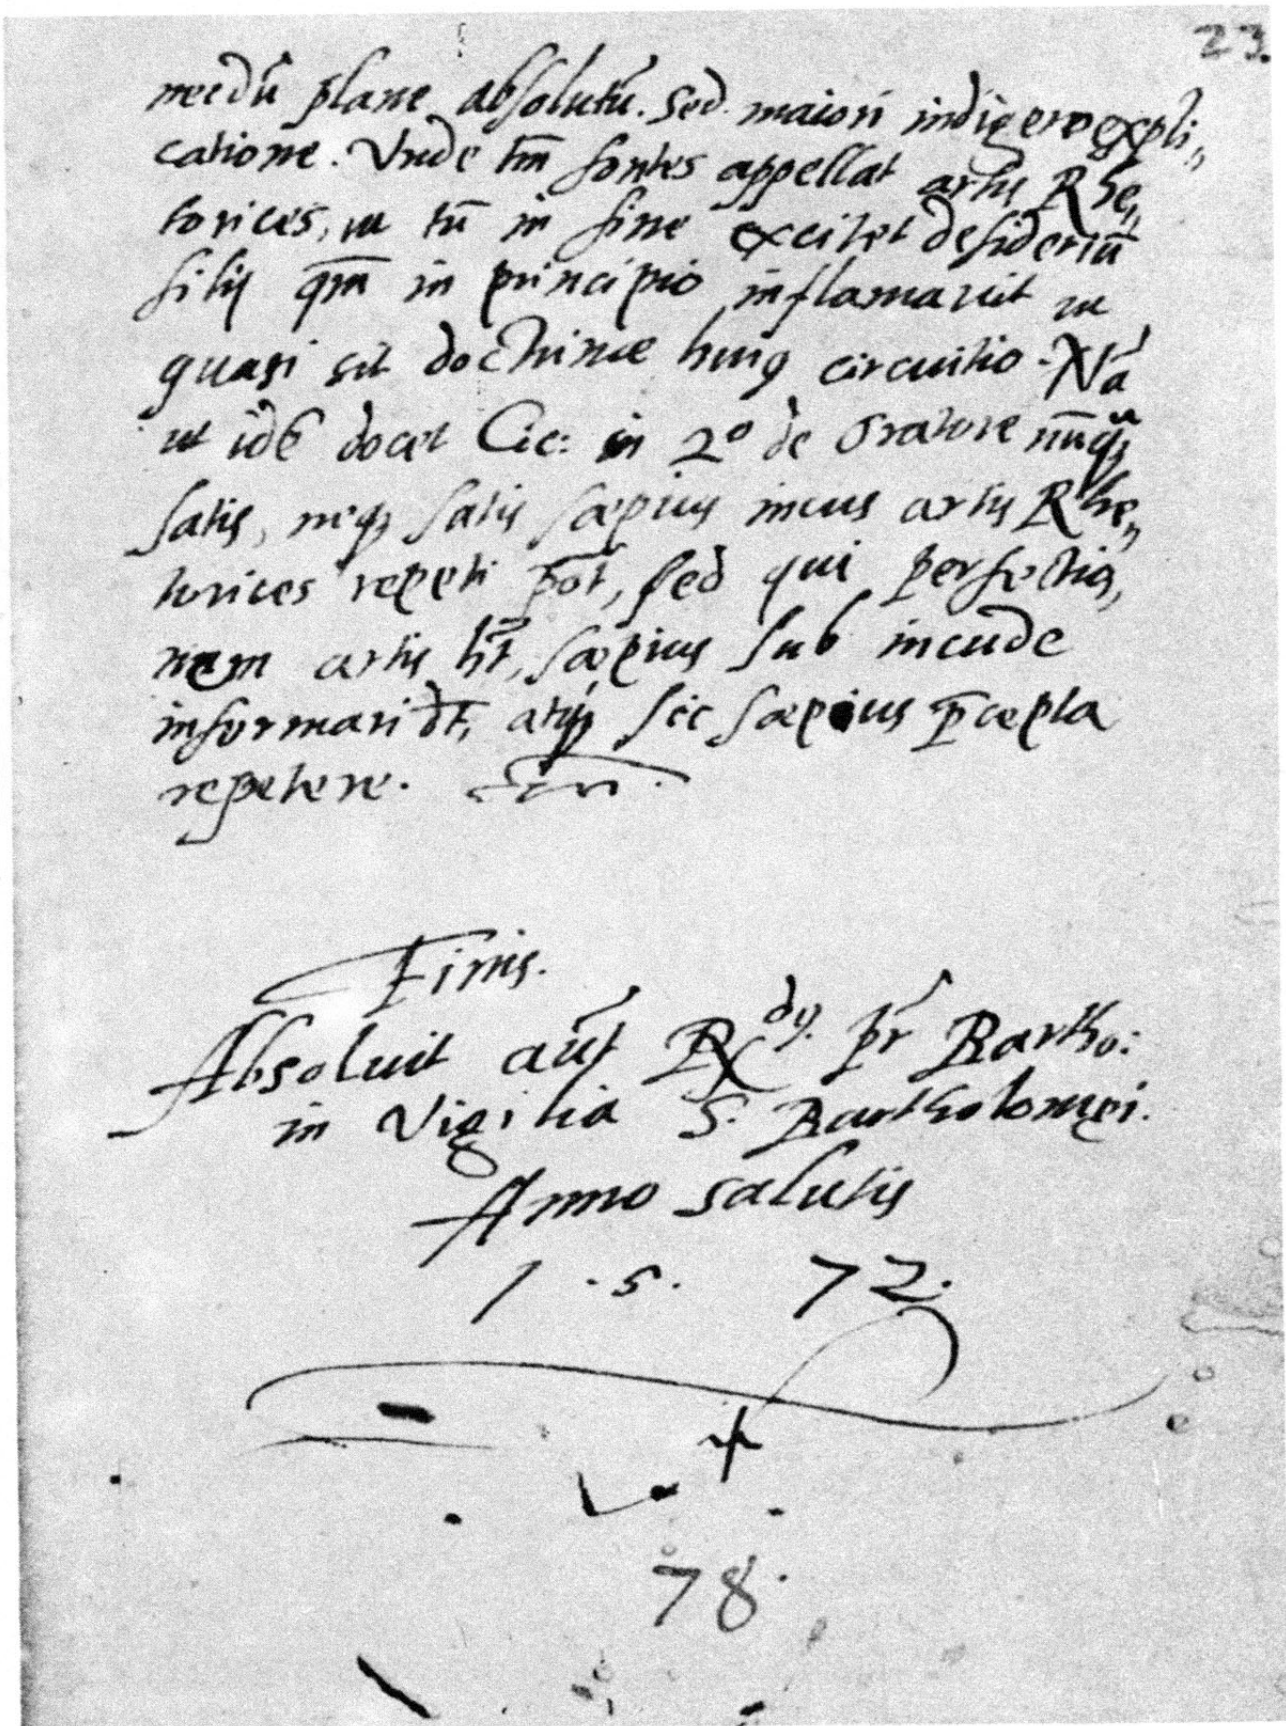 23.
necdū plane absolutū. Sed maiori indigere expli„
catione. Vnde tm̄ fontes appellat artis Rhe„
torices, ut tū in fine excitet desideriū
filij qm̄ in principio inflamauit ut
quasi sit doctrinae huiq circuitio. Nā
ut idē docet Cic: in 2º de Oratore nūq̄
satis, neq; satis saepius incus artis Rhe„
torices repeti pōt, sed qui perfectio„
nem artis hñt, saepius sub incude
informari dñt, atq; sic saepius p̄cepta
repetere.
Finis.
Absoluit aūt R dq. pr̄ Bartho:
in Vigilia S. Bartholomęi.
Anno salutis
1 . 5 . 72.
78.